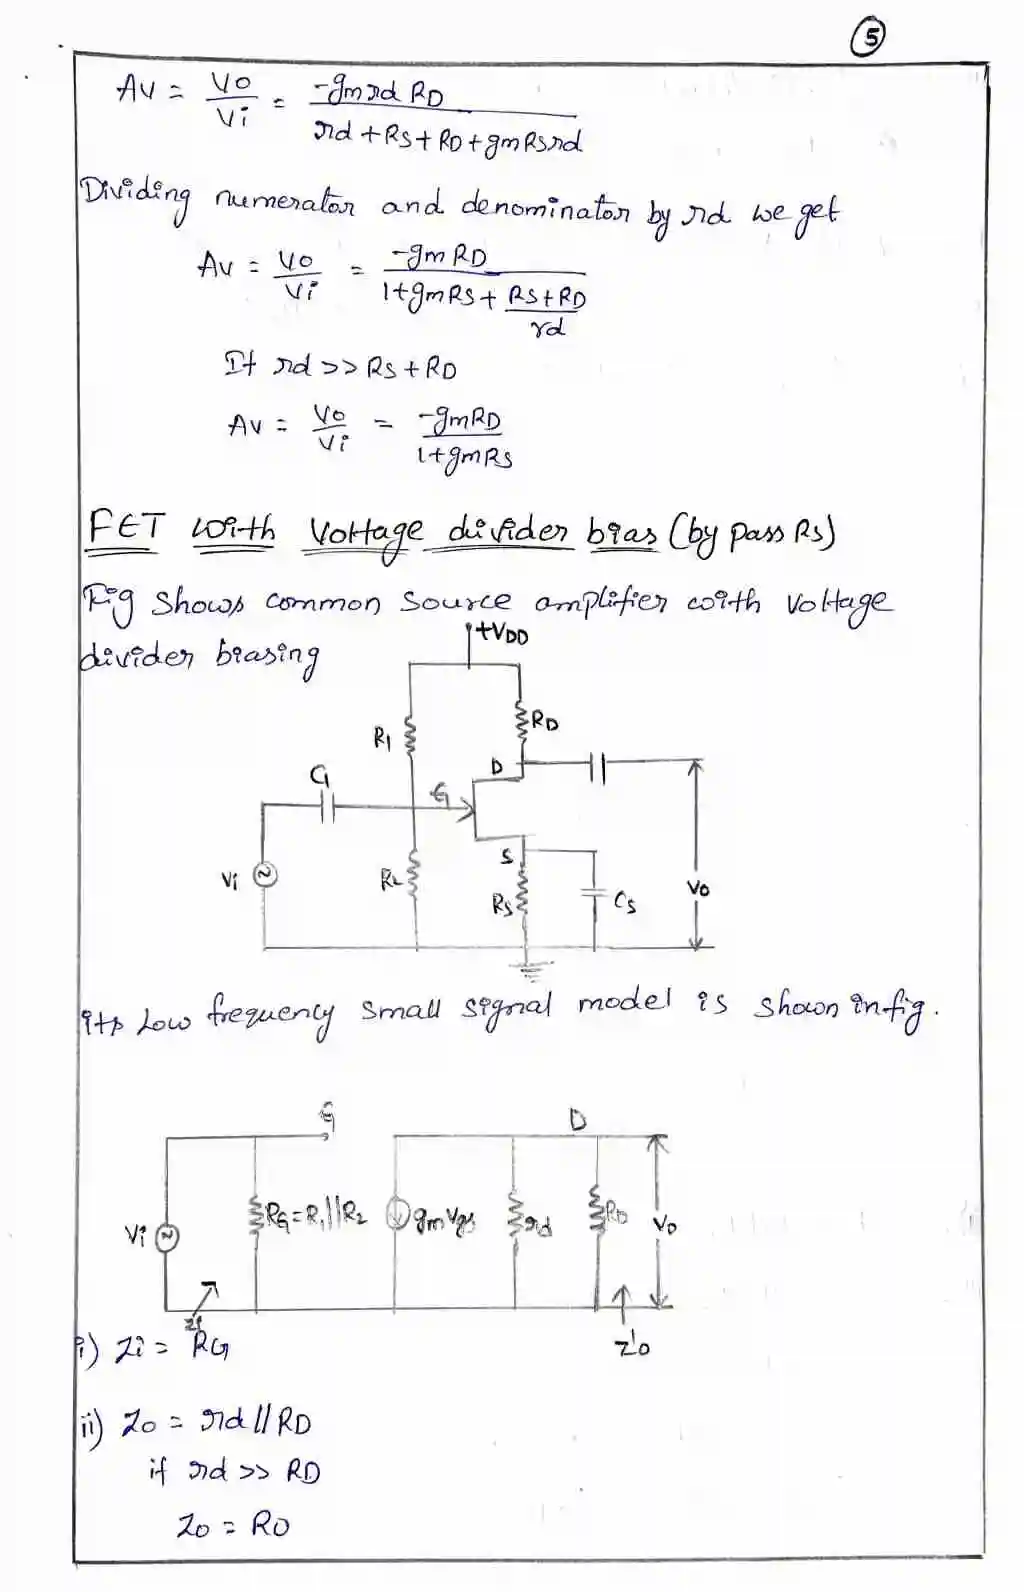 5
Av = Vo/Vi = -gm rd RD / rd + RS + RD + gm RS rd
Dividing numerator and denominator by rd we get
Av = Vo/Vi = -gm RD / 1+gm RS + RS+RD/rd
If rd >> RS + RD
Av = Vo/Vi = -gm RD / 1+gm RS
FET with Voltage divider bias (by pass Rs)
Fig shows common source amplifier with voltage
divider biasing
+VDD
R1
RD
D
C1
G
S
Vi
R2
RS
CS
Vo
its Low frequency small signal model is shown in fig.
G
D
Vi
RG = R1 || R2
gm Vgs
rd
RD
Vo
Zi
Z'o
i) Zi = RG
ii) Zo = rd || RD
if rd >> RD
Zo = RD